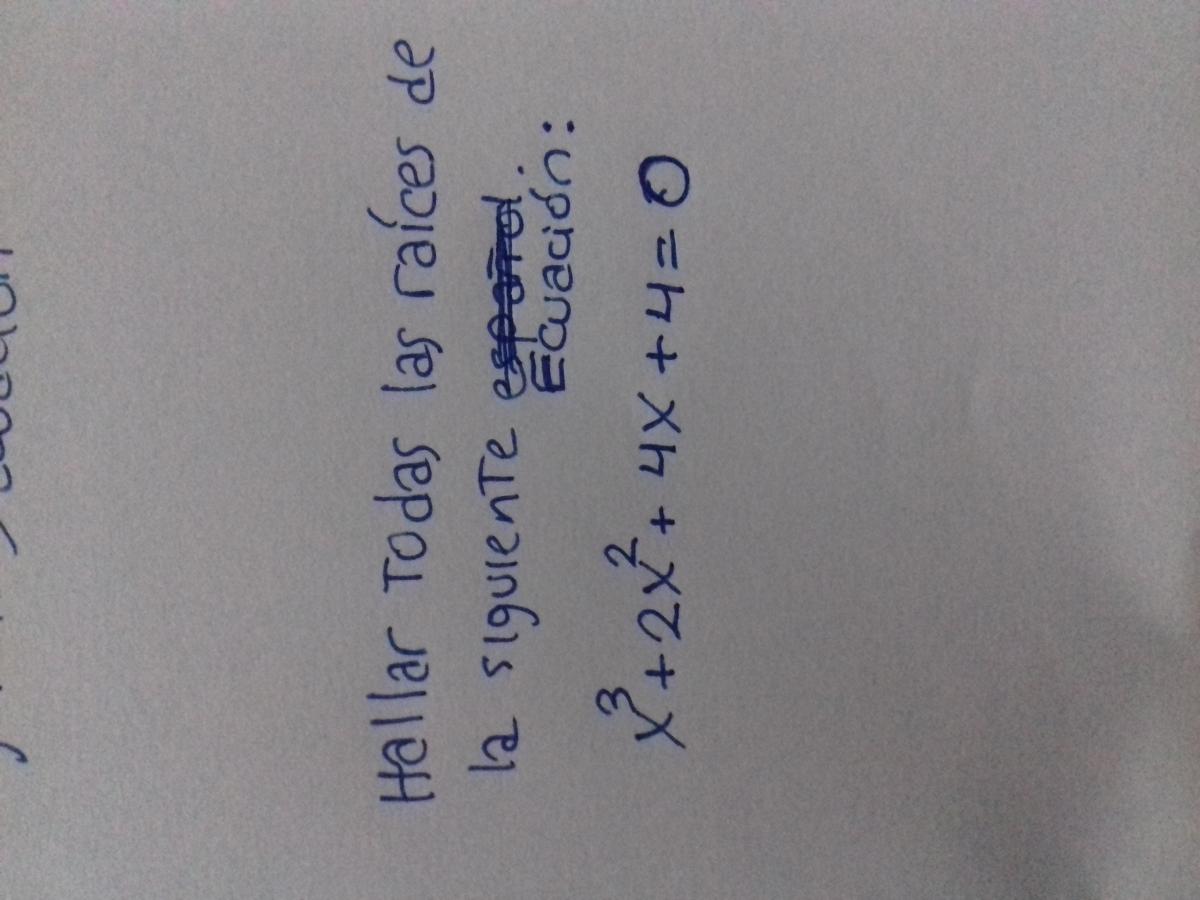 Hallar Todas las raíces de
la siguiente
Ecuación:
x³ + 2x² + 4x + 4 = 0